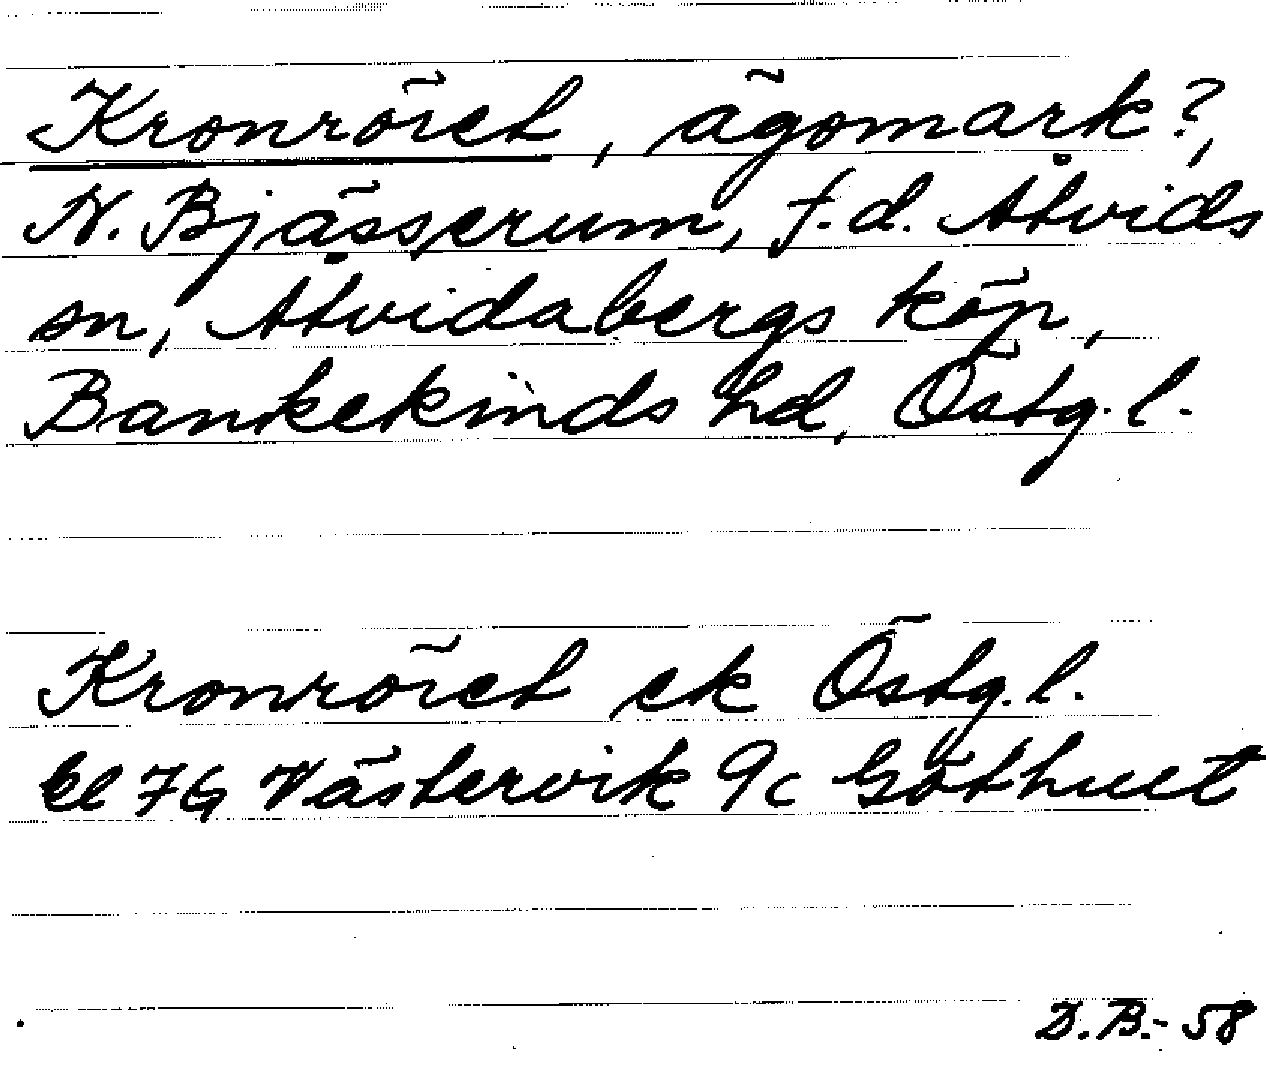 Kronröret, ägomark?,
N. Bjässerum, f.d. Åtvids
sn, Åtvidabergs köp,
Bankekinds hd, Östg.l.
Kronröret ek Östg.l.
bl 7G Västervik 9c Göthult
D.B.- 58